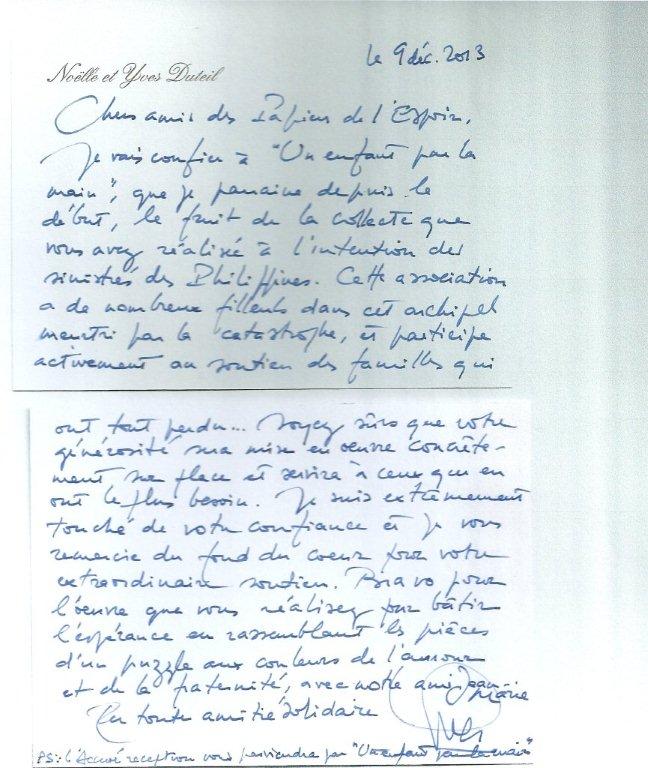 le 9 déc. 2013
Noëlle et Yves Duteil
Chers amis des Papiers de l'Espoir,
Je vais confier à "Un enfant par la
main", que je parraine depuis le
début, le fruit de la collecte que
vous avez réalisée à l'intention des
sinistrés des Philippines. Cette association
a de nombreux filleuls dans cet archipel
meurtri par la catastrophe, et participe
activement au soutien des familles qui
ont tout perdu... Soyez sûrs que votre
générosité sera mise en oeuvre concrète-
ment, sur place et servira à ceux qui en
ont le plus besoin. Je suis extrêmement
touché de votre confiance et je vous
remercie du fond du coeur pour votre
extraordinaire soutien. Bravo pour
l'oeuvre que vous réalisez pour bâtir
l'espérance en rassemblant les pièces
d'un puzzle aux couleurs de l'amour
et de la fraternité, avec notre ami Jean
Marie
En toute amitié solidaire
Yves
PS: l'Accusé réception vous parviendra par "Un enfant par la main"